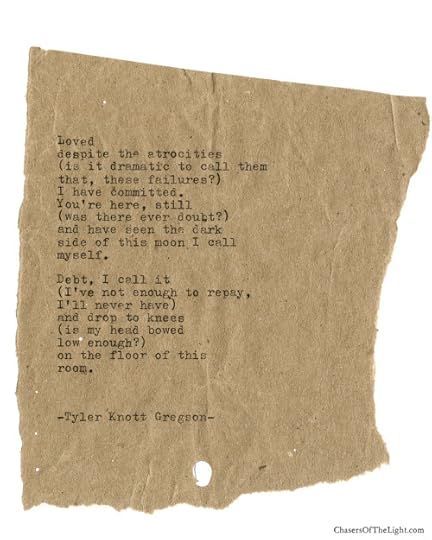 Loved
despite the atrocities
(is it dramatic to call them
that, these failures?)
I have committed.
You're here, still
(was there ever doubt?)
and have seen the dark
side of this moon I call
myself.
Debt, I call it
(I've not enough to repay,
I'll never have)
and drop to knees
(is my head bowed
low enough?)
on the floor of this
room.
-Tyler Knott Gregson-
ChasersOfTheLight.com